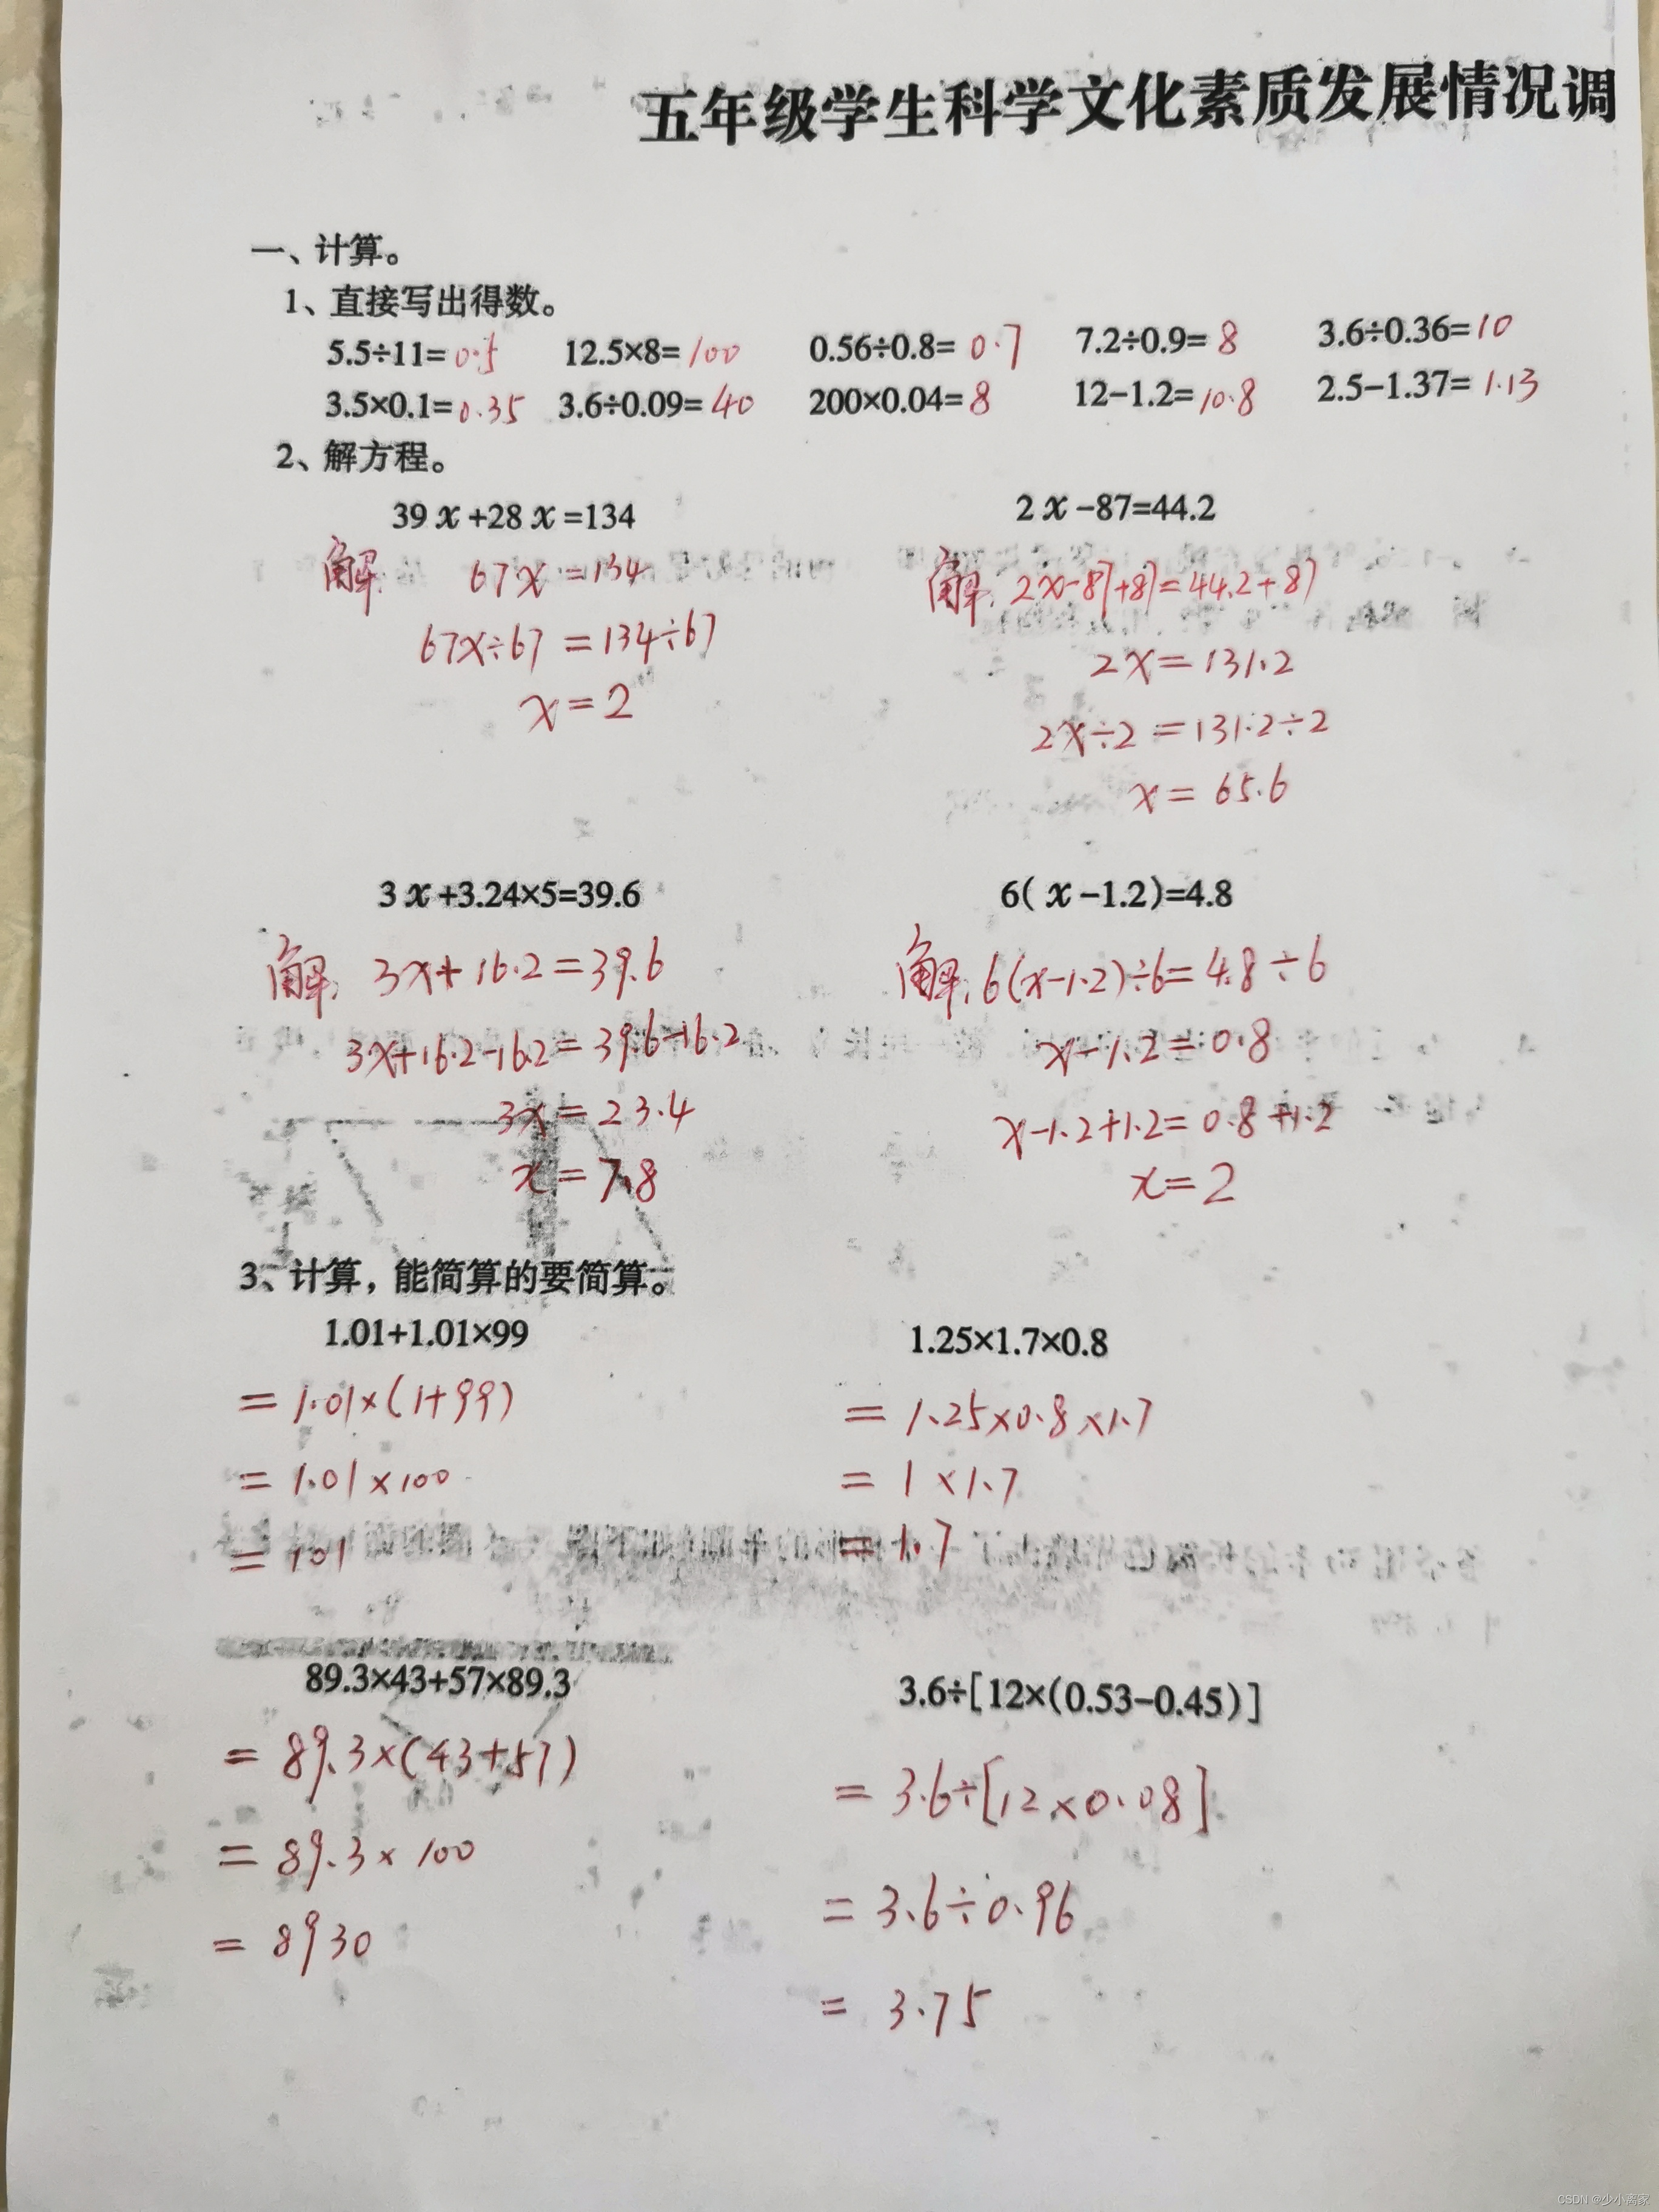 五年级学生科学文化素质发展情况调
一、计算。
1、直接写出得数。
5.5÷11=0.5 12.5×8=100 0.56÷0.8=0.7 7.2÷0.9=8 3.6÷0.36=10
3.5×0.1=0.35 3.6÷0.09=40 200×0.04=8 12-1.2=10.8 2.5-1.37=1.13
2、解方程。
39x+28x=134 2x-87=44.2
解: 67x=134 解: 2x-87+87=44.2+87
67x÷67=134÷67 2x=131.2
x=2 2x÷2=131.2÷2
x=65.6
3x+3.24×5=39.6 6(x-1.2)=4.8
解: 3x+16.2=39.6 解: 6(x-1.2)÷6=4.8÷6
3x+16.2-16.2=39.6-16.2 x-1.2=0.8
3x=23.4 x-1.2+1.2=0.8+1.2
x=7.8 x=2
3、计算，能简算的要简算。
1.01+1.01×99 1.25×1.7×0.8
=1.01×(1+99) =1.25×0.8×1.7
=1.01×100 =1×1.7
=101 =1.7
89.3×43+57×89.3 3.6÷[12×(0.53-0.45)]
=89.3×(43+57) =3.6÷[12×0.08]
=89.3×100 =3.6÷0.96
=8930 =3.75
CSDN @少小离家